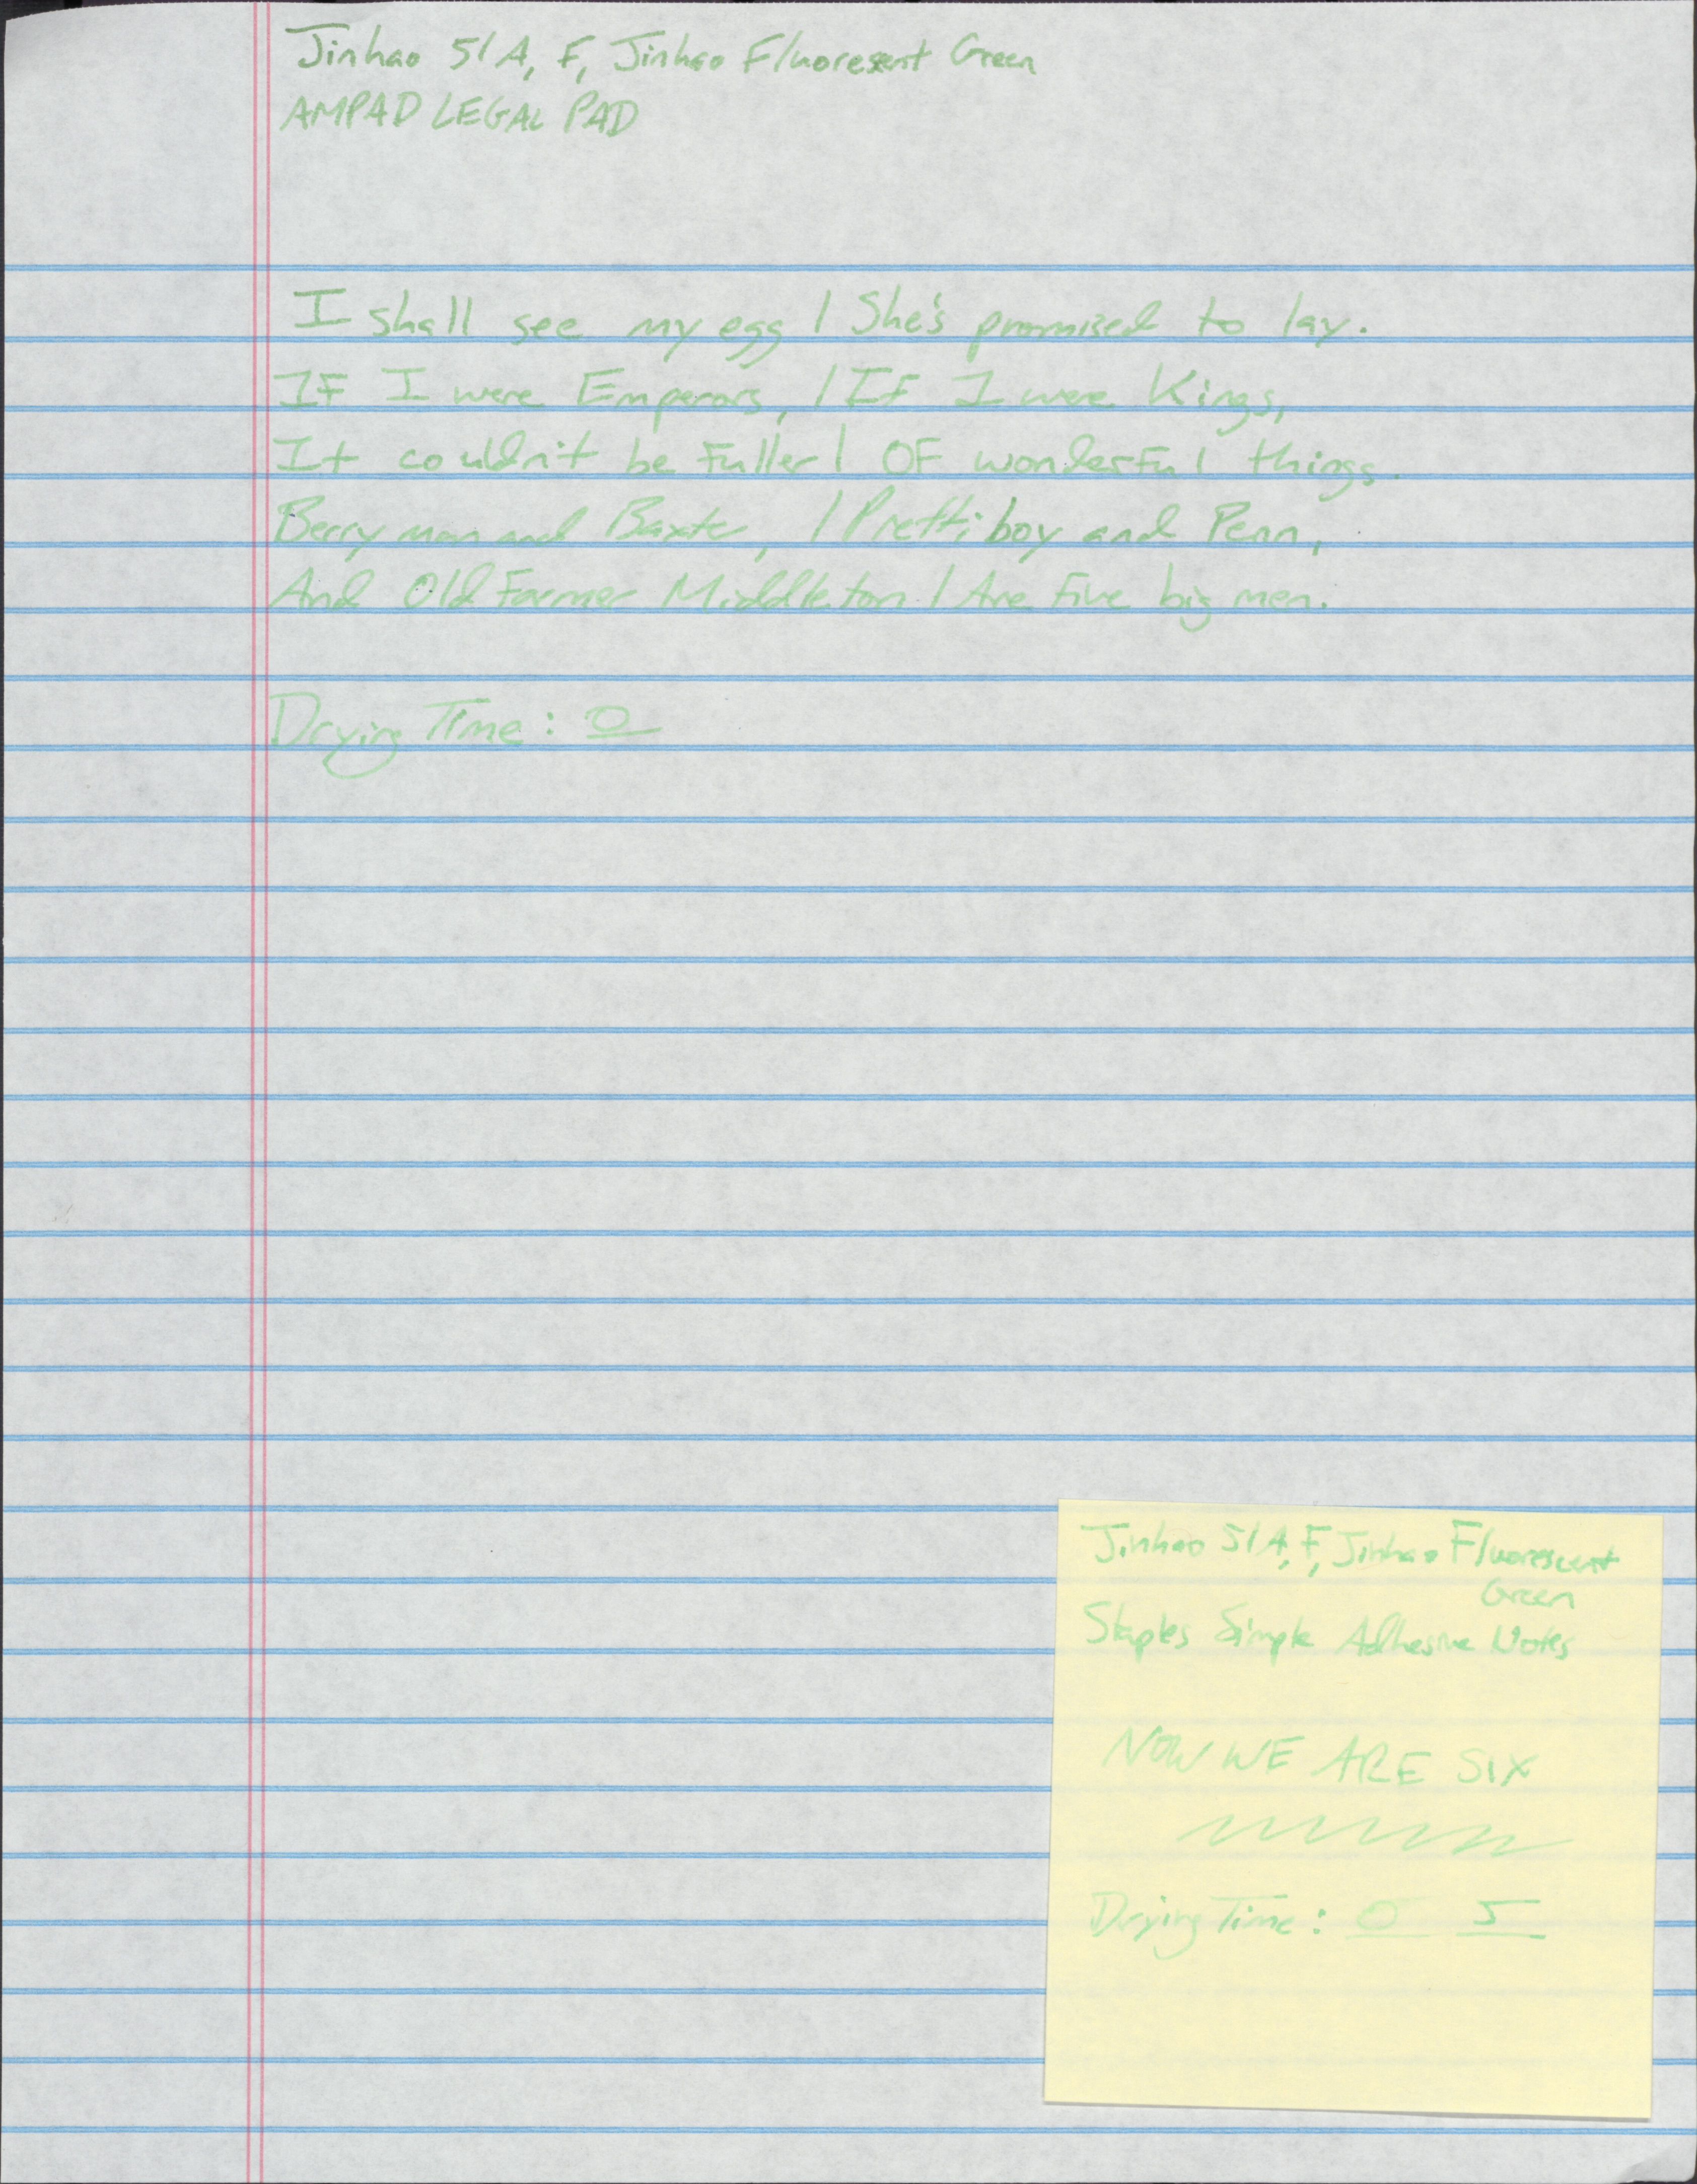 Jinhao 51A, F, Jinhao Fluoresent Green
AMPAD LEGAL PAD
I shall see my egg / She's promised to lay.
If I were Emperors, / If I were Kings,
It couldn't be fuller / Of wonderful things.
Berryman and Baxter, / Prettiboy and Penn,
And Old Farmer Middleton / Are five big men.
Drying Time: 0
Jinhao 51A, F, Jinhao Fluorescent
Green
Staples Simple Adhesive Notes
NOW WE ARE SIX
Drying Time: 0 5